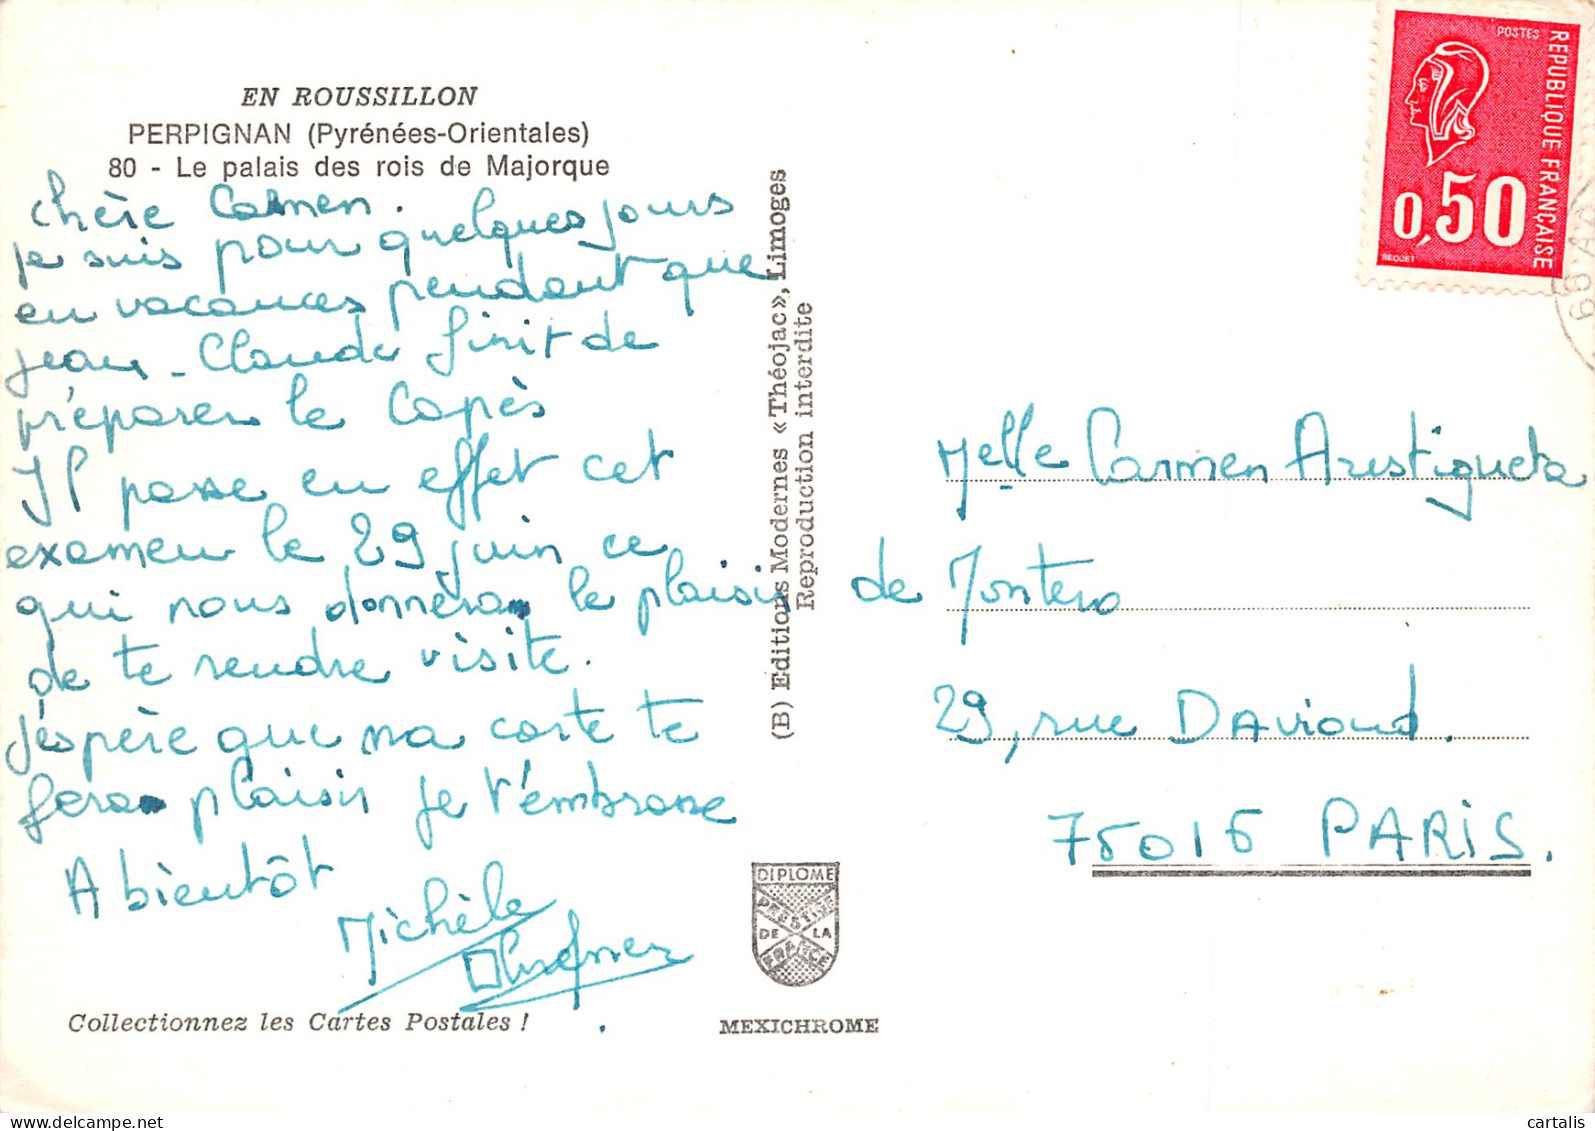 EN ROUSSILLON
PERPIGNAN (Pyrénées-Orientales)
80 - Le palais des rois de Majorque
Chère Carmen.
je suis pour quelques jours
en vacances pendant que
jean-Claude finit de
préparer le Capès
Il passe en effet cet
examen le 29 juin ce
qui nous donnera le plaisir
de te rendre visite.
j'éspère que ma carte te
fera plaisir je t'embrasse
A bientôt
Michèle
Collectionnez les Cartes Postales !
(B) Editions Modernes «Théojac», Limoges
Reproduction interdite
DIPLOME
PRESTIGE
DE LA
FRANCE
MEXICHROME
POSTES
REPUBLIQUE FRANÇAISE
0,50
BEQUET
66
Melle Carmen Aristigueta
de Montero
29, rue DAVioud.
75016 PARiS.
cartalis
delcampe.net